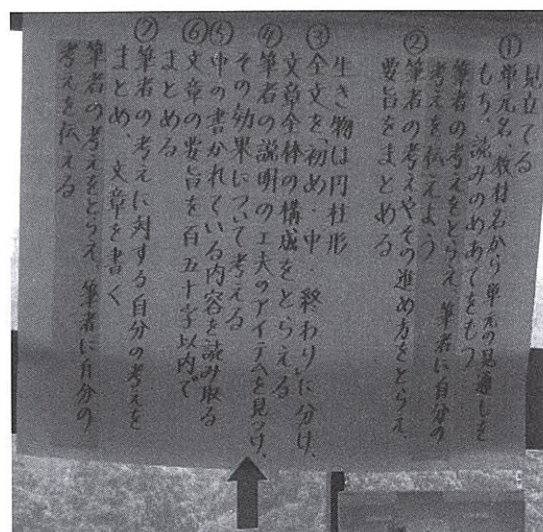 見立てる
①単元名、教材名から単元の見通しを
もち、読みのめあてをもつ
筆者の考えをとらえ、筆者に自分の
考えを伝えよう
②筆者の考えやその進め方をとらえ、
要旨をまとめる
生き物は円柱形
③全文を、初め・中・終わりに分け、
文章全体の構成をとらえる
④筆者の説明の工夫のアイテムを見つけ、
その効果について考える
⑤中の書かれている内容を読み取る
⑥文章の要旨を百五十字以内で
まとめる
⑦筆者の考えに対する自分の考えを
まとめ、文章を書く
筆者の考えをとらえ、筆者に自分の
考えを伝える